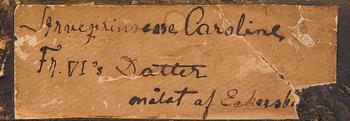 Arveprinsesse Caroline
Fr. VI's Datter
malet af Eckersb